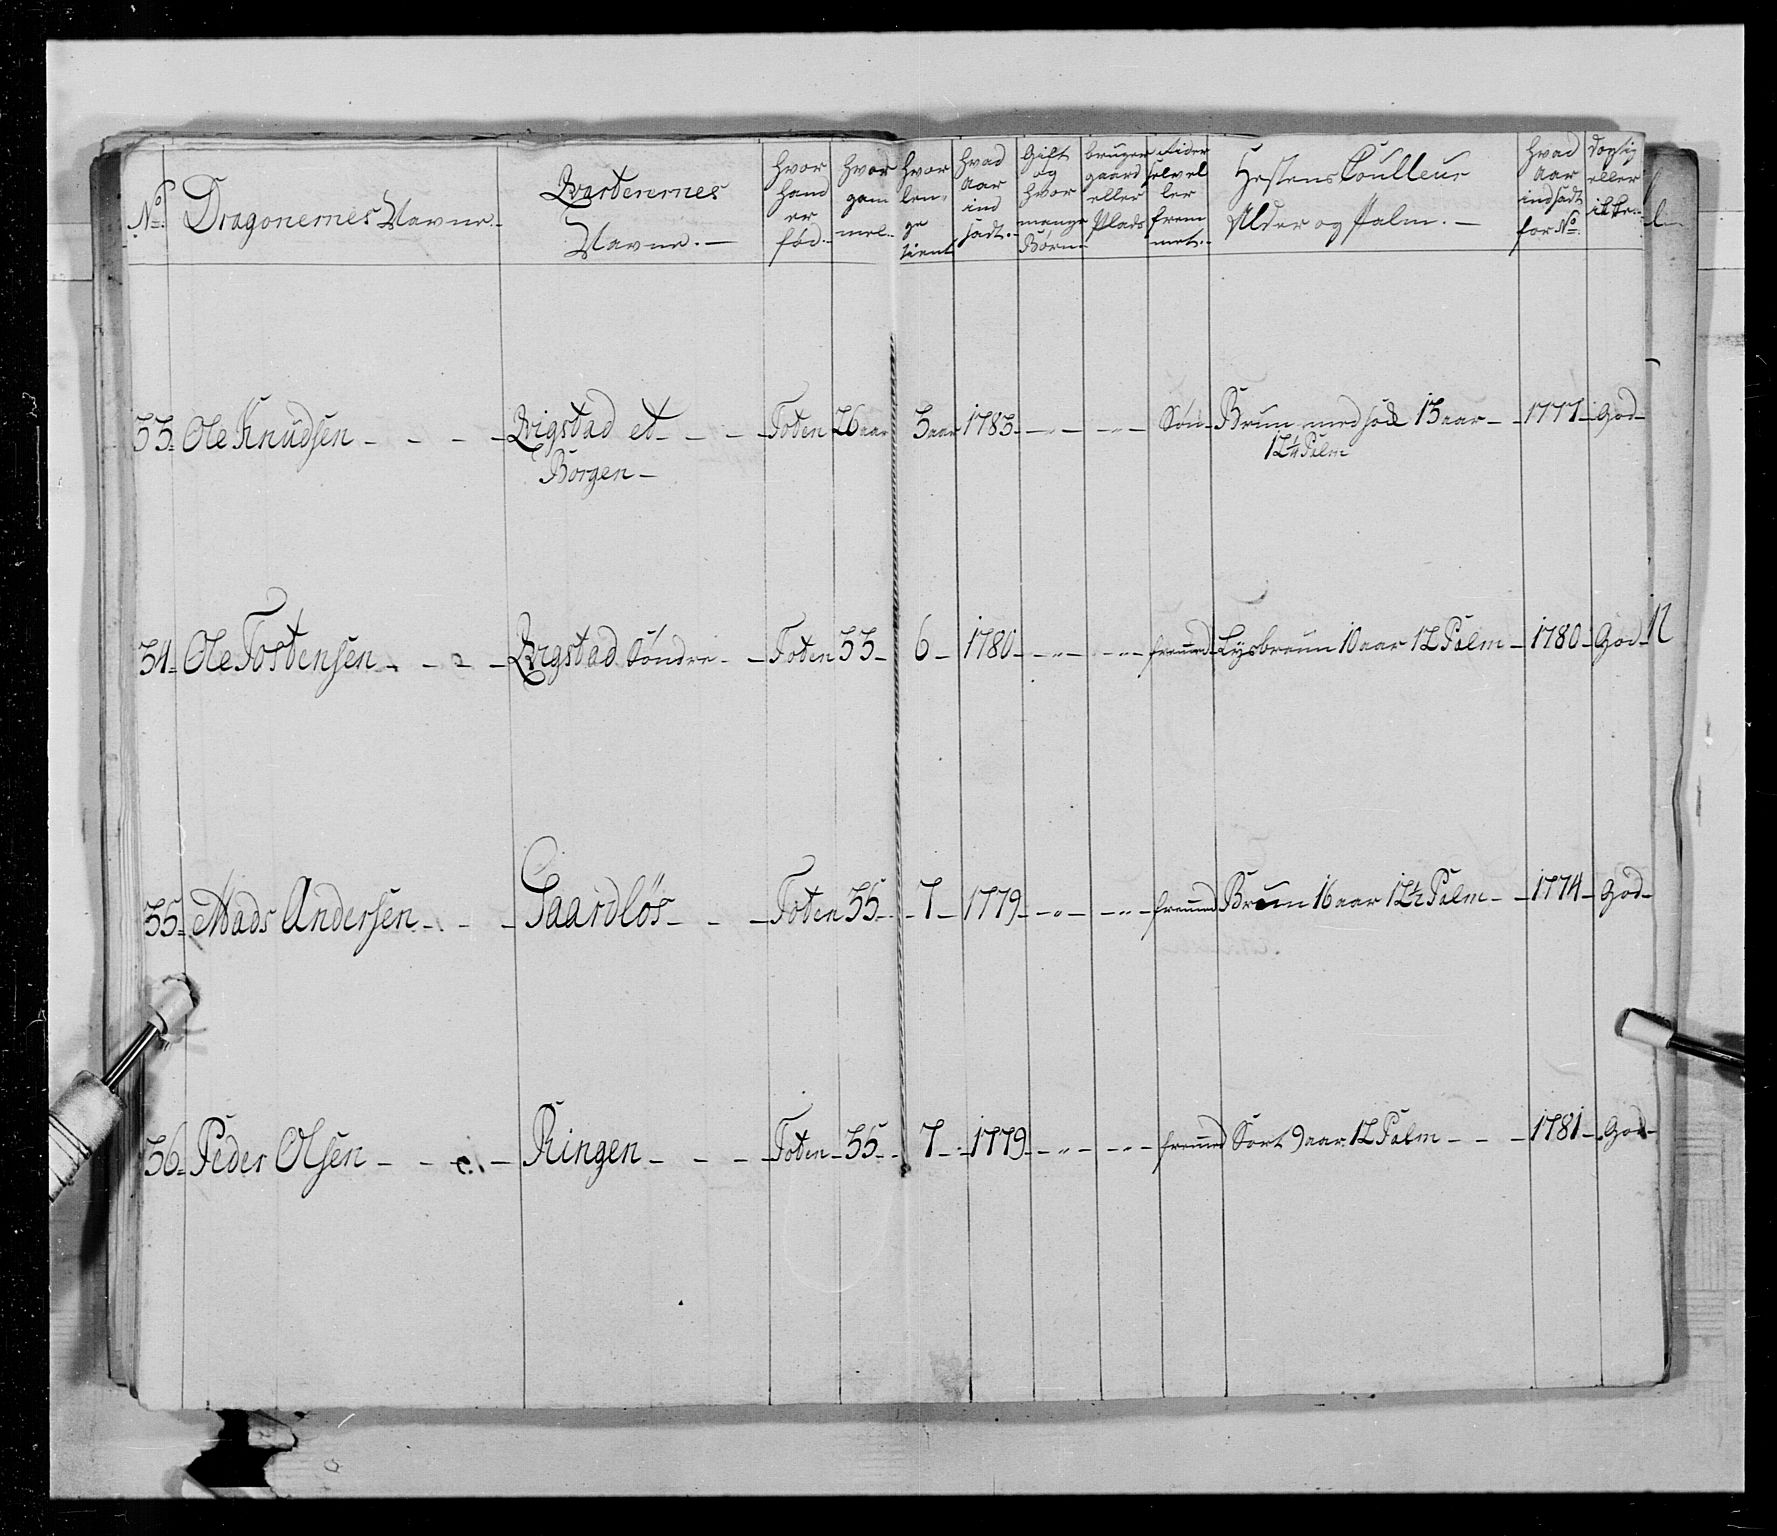 No. Dragonernes Navne. Qvarterernes Navne. Hvor hand er fød. Hvor gammel. Hvor lenge tient Hvad Aar indsadt. Gift og Hvor mange Børn bruger gaard eller Plads Rider selv eller fremmet. Hestens Coulleur Alder og Palm. Hvad Aar indsadt for No. Dogtig eller ikke
33. Ole Knudsen Qvigstad et Toten 26 aar 3 aar 1783 Søn Brun med 13 aar 1777 God
Borgen 12¼ Palm
34. Ole Tostensen Qvigstad Söndre Toten 33 6 1780 fremmed Lysbruun 10 aar 12 Palm 1780 God
35. Mads Andersen Gaardlös Toten 35 7 1779 fremmed Bruun 16 aar 12½ Palm 1774 God
36. Peder Olsen Ringen Toten 35 7 1779 fremmed Sort 9 aar 12 Palm 1781 God